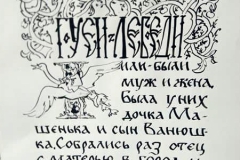 ГУСИ-ЛЕБЕДИ
ИЛИ-БЫЛИ
МУЖ И ЖЕНА.
БЫЛА У НИХ
ДОЧКА МА-
ШЕНЬКА И СЫН ВАНЮШ-
КА. СОБРАЛИСЬ РАЗ ОТЕЦ
С МАТЕРЬЮ В ГОРОД И